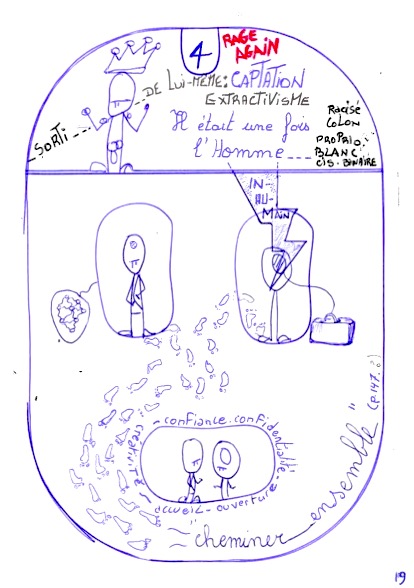 4
RAGE
AGAIN
SORTI --- DE LUI-MÊME: CAPTATION
EXTRACTIVISME
Il était une fois
l'Homme ---
Racisé
COLON
PROPRIO.
BLANC
CIS. BINAIRE
IN
HU-
MAIN
confiance. confidentialité.
créativité
accueil - ouverture
"cheminer ensemble" (p147.)
19